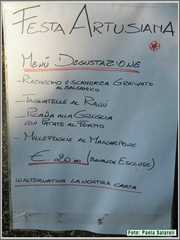 FESTA ARTUSIANA
MENÙ DEGUSTAZIONE
- RADICCHIO E SCAMORZA GRATINATO
AL BALSAMICO
- TAGLIATELLE AL RAGÙ
ALLA GRIGLIA
CON PATATE AL FORNO
- MILLEFOGLIE AL MASCARPONE
€ 20,00 (BEVANDE ESCLUSE)
IN ALTERNATIVA LA NOSTRA CARTA
Foto: Paola Salaroli